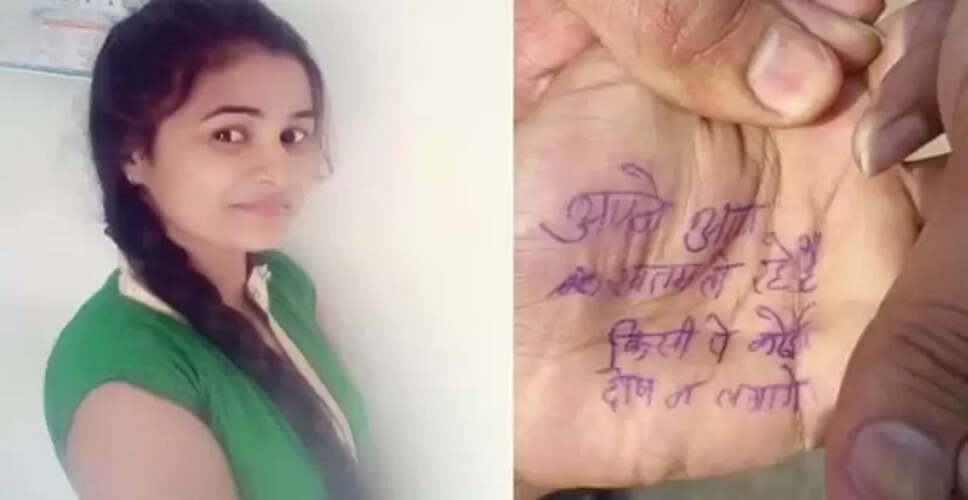 अपने आप
खतम ले रहे है
किसी पे कोई
दोष न लगागे